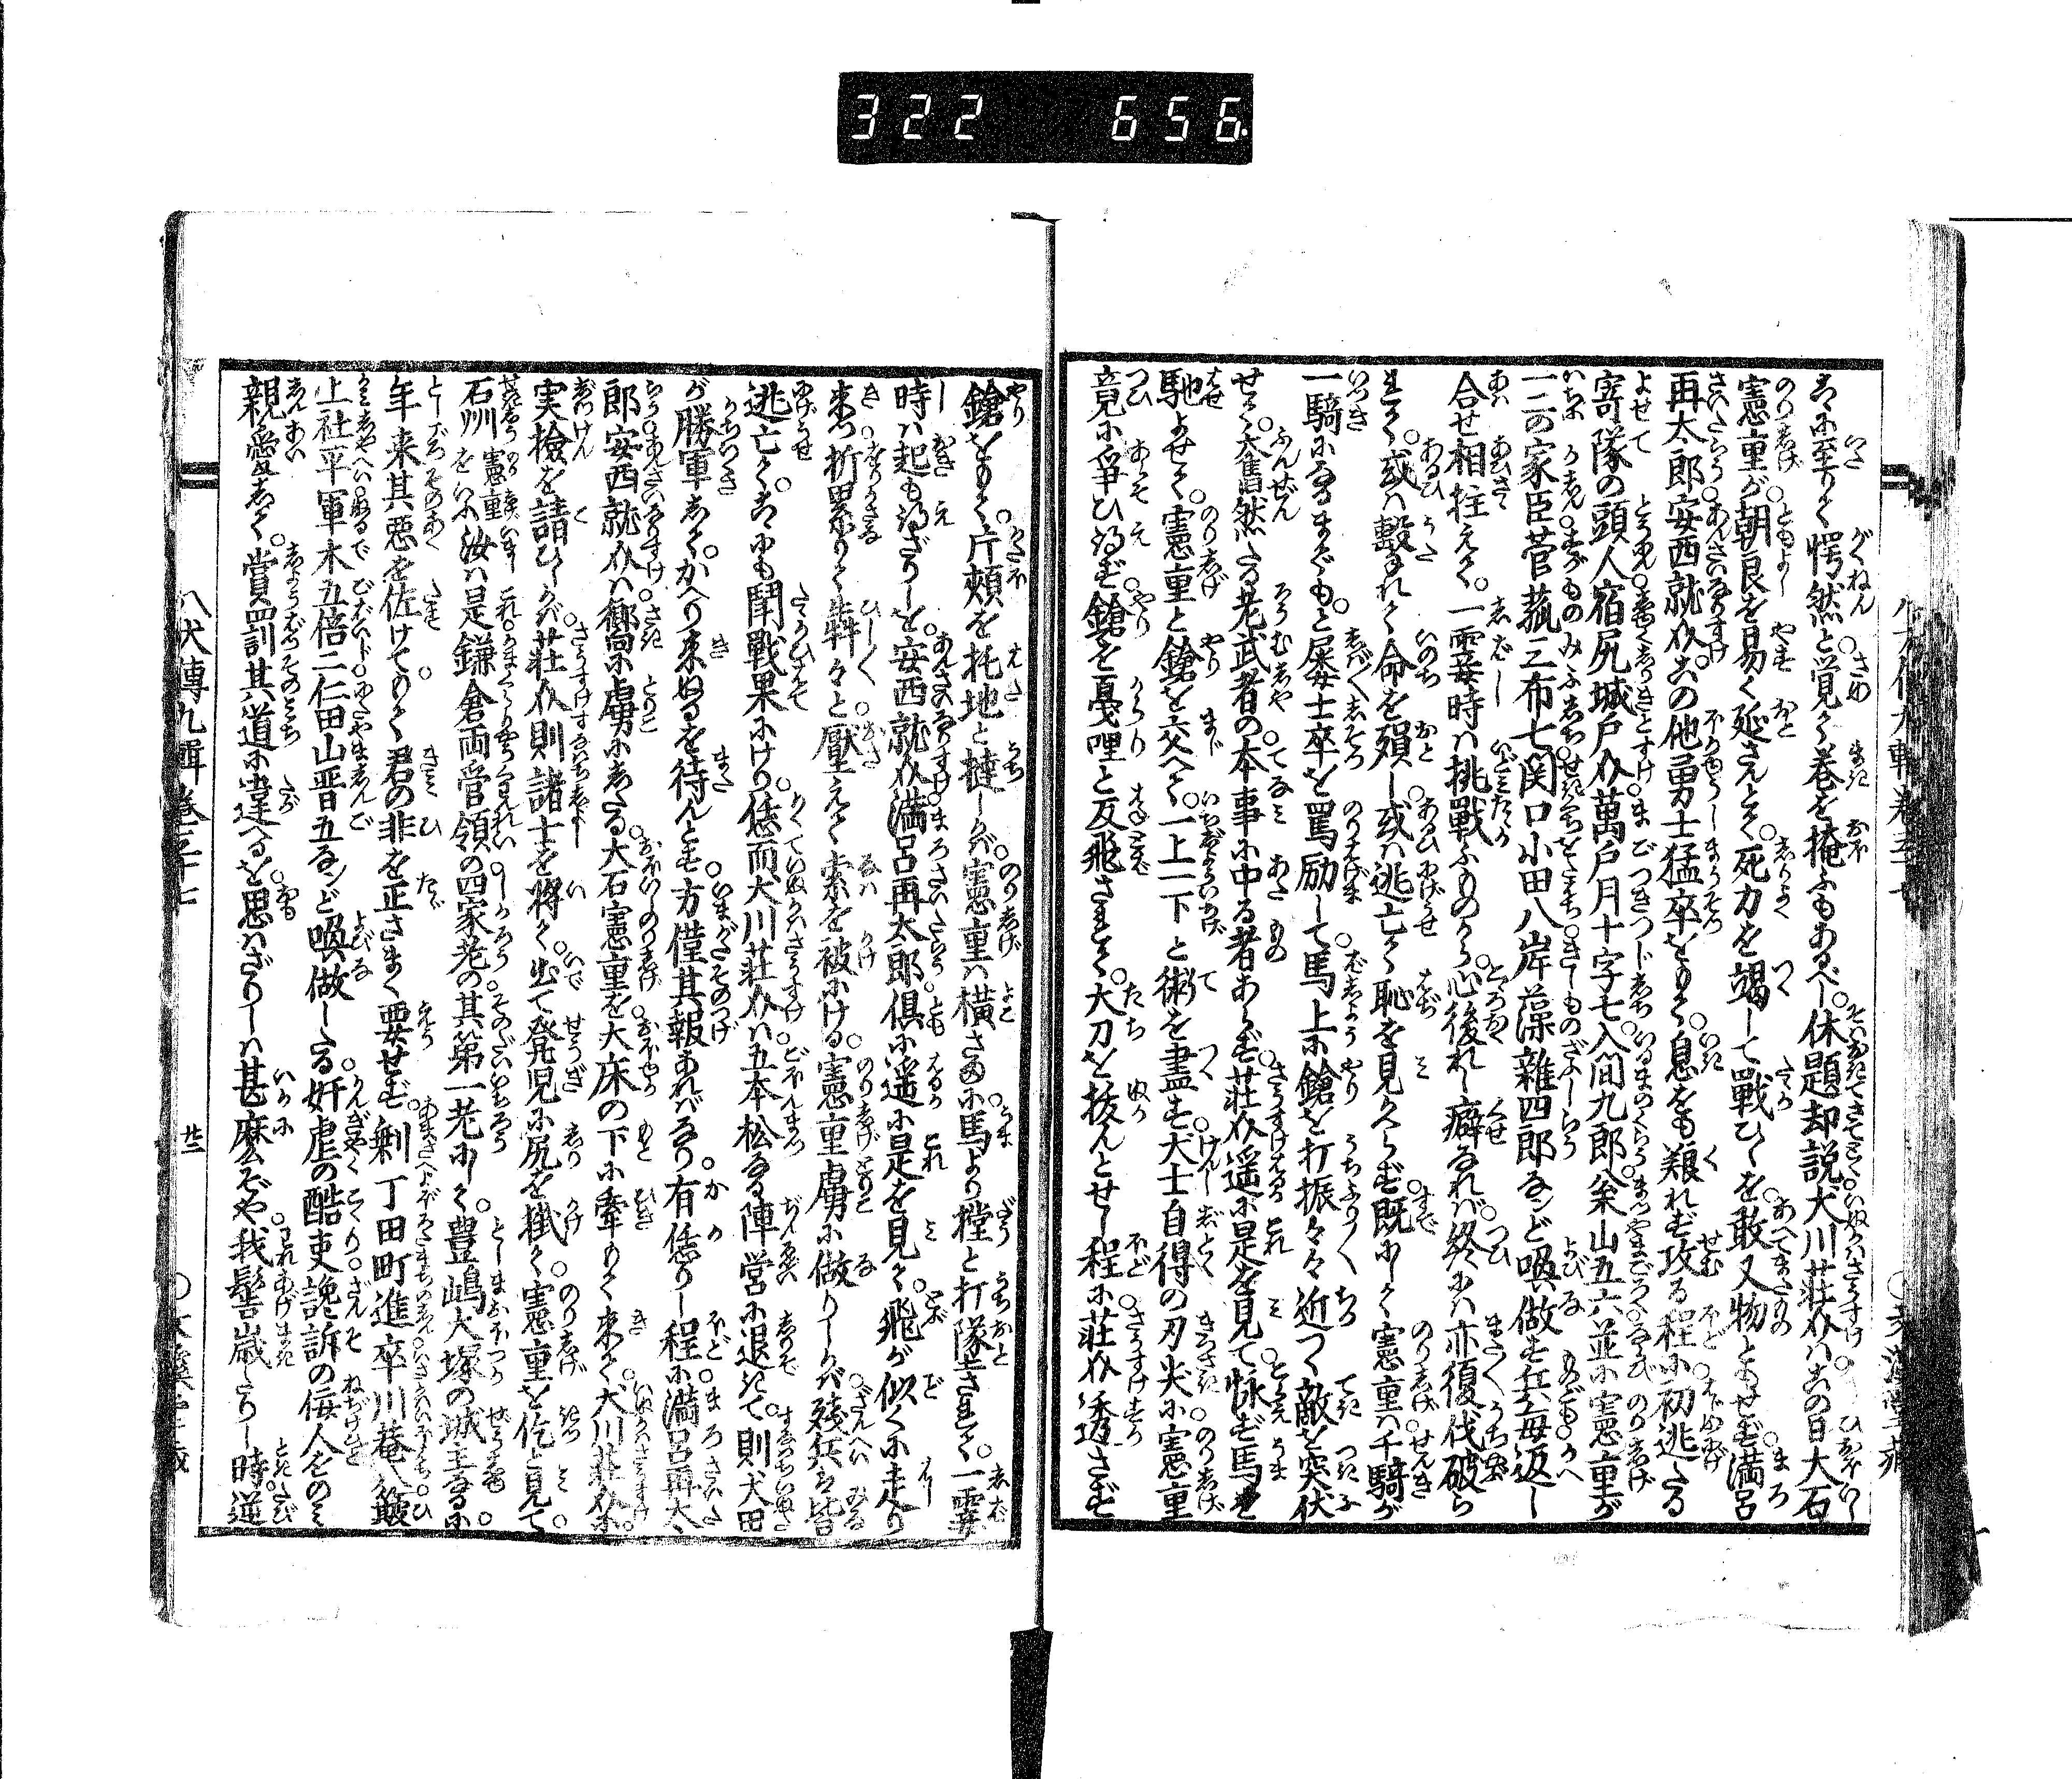 322 656
こゝに至りて愕然と覚て巻を掩ふもあるべし。休題却説犬川荘介はこの日大石
憲重が朝良を易く延さんとて死力を竭して戦ひしを敢又物ともせず満呂
再太郎安西就介この他勇士猛卒をもて息をも䬵れず攻る程に初逃たる
寄隊の頭人宿尻城戸介萬戸月十字七入間九郎八粂山五六並に憲重が
一二の家臣菅菰三布七関口小田八岸藻雑四郎なンど喚做す兵毎返し
合せ相拄えて一霎時は挑戦ふものから心後れし癖なれば終には亦復伐破ら
れて或は撃れて命を殞し或は逃亡て恥を見かへらず既にして憲重は千騎が
一騎になるまでもと屡士卒を罵励して馬上に鎗を打振々々近つく敵を突伏
せて奮然たる老武者の本事に中る者あらず荘介遥に是を見て怺ず馬を
馳よせて憲重と鎗を交へて一上一下と術を盡す犬士自得の刃尖に憲重
竟に争ひ得ず鎗を戞哩と反飛されて大刀を抜んとせし程に荘介透さず
鎗をもて片頬を托地と撻しかば憲重は横さまに馬より撲と打墜されて一霎
時は起も得ざりしを安西就介満呂再太郎倶に遥に是を見て飛が似くに走り
来つ折累りて犇々と壓えて索を被にける。憲重虜に做りしかば残兵は皆
逃亡てこゝにも闘戦果にけり。恁而犬川荘介は五本松なる陣営に退きて則犬田
が勝軍してかへり来ぬるを待んとす方僅其報あればなり有恁りし程に満呂再太
郎安西就介は嚮に虜にしたる大石憲重を大床の下に牽もて来て犬川荘介に
実檢を請ひしかば荘介則諸士を将て出て凳児に尻を掛て憲重を佶と見て
石州憲重をいふ汝は是鎌倉両管領の四家老の其第一老にして豊嶋大塚の城主なるに
年来其悪を佐けてのみ君の非を正さまく要せず剰丁田町進卒川菴八簸
上社平軍木五倍二仁田山晋五なンど喚做したる奸虐の酷吏讒訴の佞人をのみ
親愛して賞罰其道に違へるを思はざりしは甚麽ぞや我髻歳たりし時逆
八犬傳九輯巻三十七
廿二